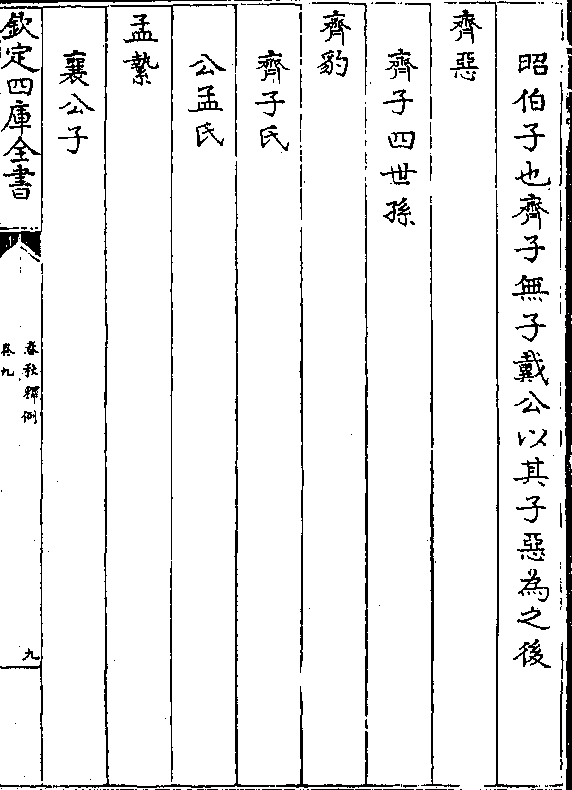 昭伯子也齊子無子戴公以其子惡為之後
齊惡
齊子四世孫
齊豹
齊子氏
公孟氏
孟縶
襄公子
欽定四庫全書
春秋釋例
卷九
九